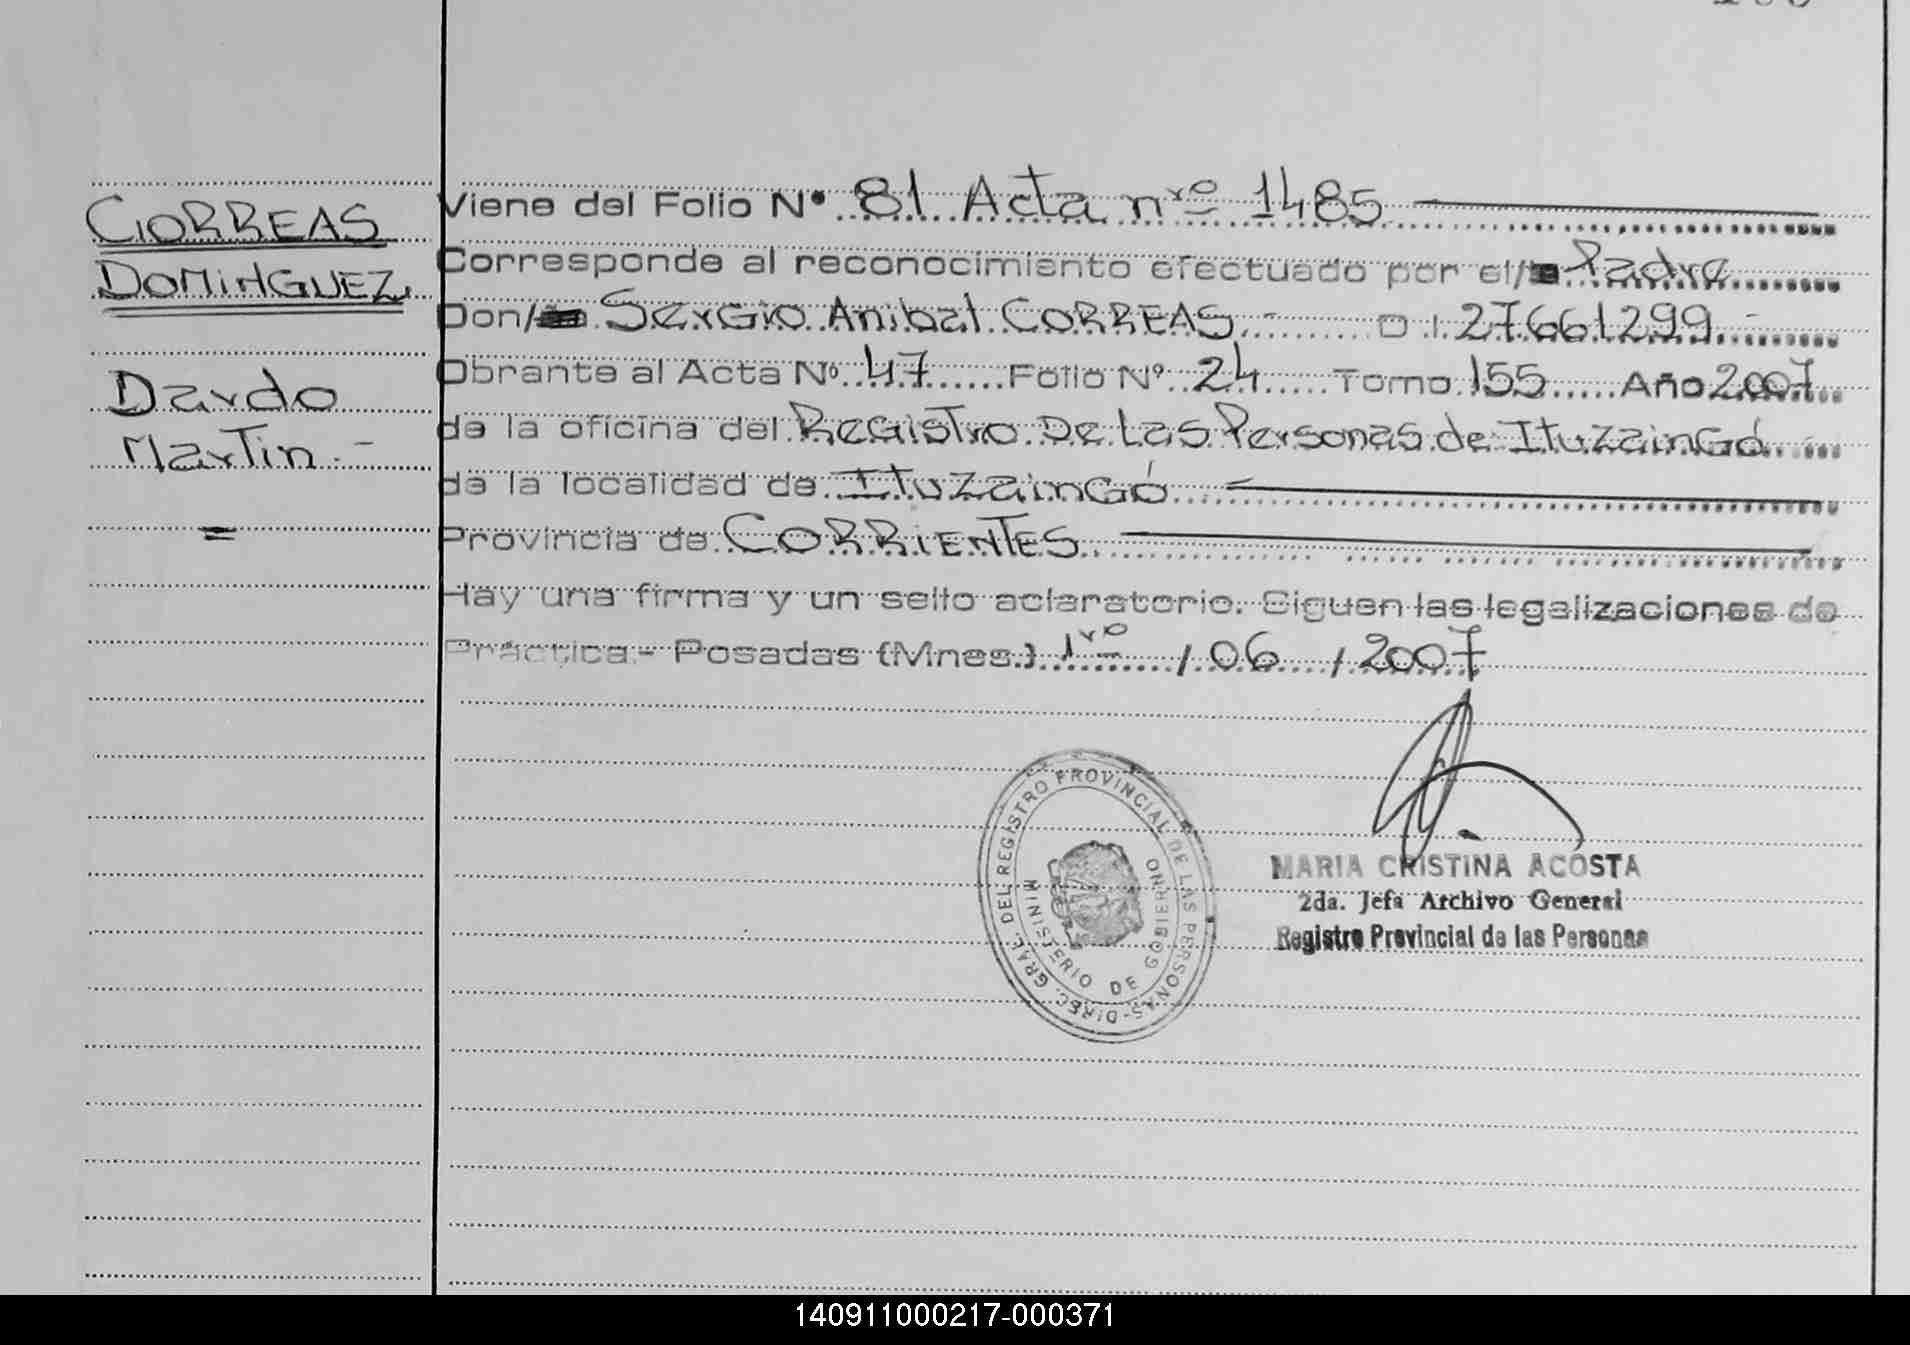 CORREAS
DOMINGUEZ
Dardo
Martin.-
=
Viene del Folio N° 81 Acta nro 1485
Corresponde al reconocimiento efectuado por el/ Padre
Don/ Sergio Anibal CORREAS.- D.I. 27661299.-
Obrante al Acta Nº 47 Folio Nº 24 Tomo 155 Año 2007
de la oficina del Registro De Las Personas de Ituzaingó
de la localidad de Ituzaingó
Provincia de CORRIENTES
Hay una firma y un sello aclaratorio. Siguen las legalizaciones de
Práctica.- Posadas (Mnes.) 1ro / 06 / 2007
DIREC. GRAL. DEL REGISTRO PROVINCIAL DE LAS PERSONAS-
MINISTERIO DE GOBIERNO
MARIA CRISTINA ACOSTA
2da. Jefa Archivo General
Registro Provincial de las Personas
140911000217-000371